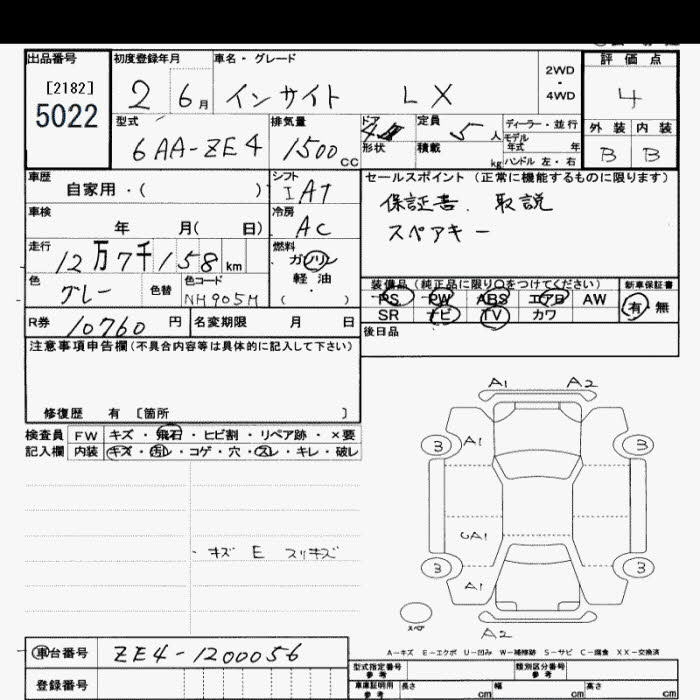 出品番号 初度登録年月 車名・グレード 評価点
[2182] 2WD
5022 2 6月 インサイト LX ・ 4
4WD
型式 排気量 ドア 定員 ディーラー・並行 外装 内装
6AA-ZE4 1500cc 4 5人 モデル年式 年 B B
形状 積載 kg ハンドル 左・右
車歴 シフト セールスポイント(正常に機能するものに限ります)
自家用・( ) IAT 保証書. 取説
車検 冷房 スペアキー
年 月( 日) AC
走行 燃料
12万7千158km ガソリン
軽油
色 色替 色コード ( ・ ) 装備品(純正品に限り○をつけてください) 新車保証書
グレー NH905M PS PW ABS エアB AW 有 無
SR ナビ TV カワ
R券 10760円 名変期限 月 日 後日品
注意事項申告欄(不具合内容等は具体的に記入して下さい)
修復歴 有 [箇所 ]
検査員 FW キズ・飛石・ヒビ割・リペア跡・×要
記入欄 内装 キズ・汚レ・コゲ・穴・スレ・キレ・破レ
A1 A2
3 A1 3
・キズ E スリキズ UA1
3 A1 3
スペア
A2
A-キズ E-エクボ U-凹み W-補修跡 S-サビ C-腐食 XX-交換済
車台番号 ZE4-1200056
登録番号
型式指定番号 参考 類別区分番号 参考
車庫証明用 参考 長さ cm 幅 cm 高さ cm